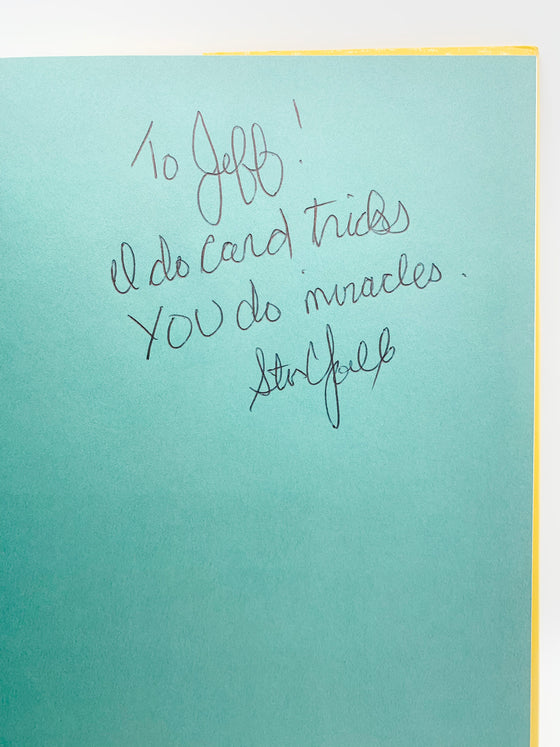 To Jeff!
I do card tricks
YOU do miracles.